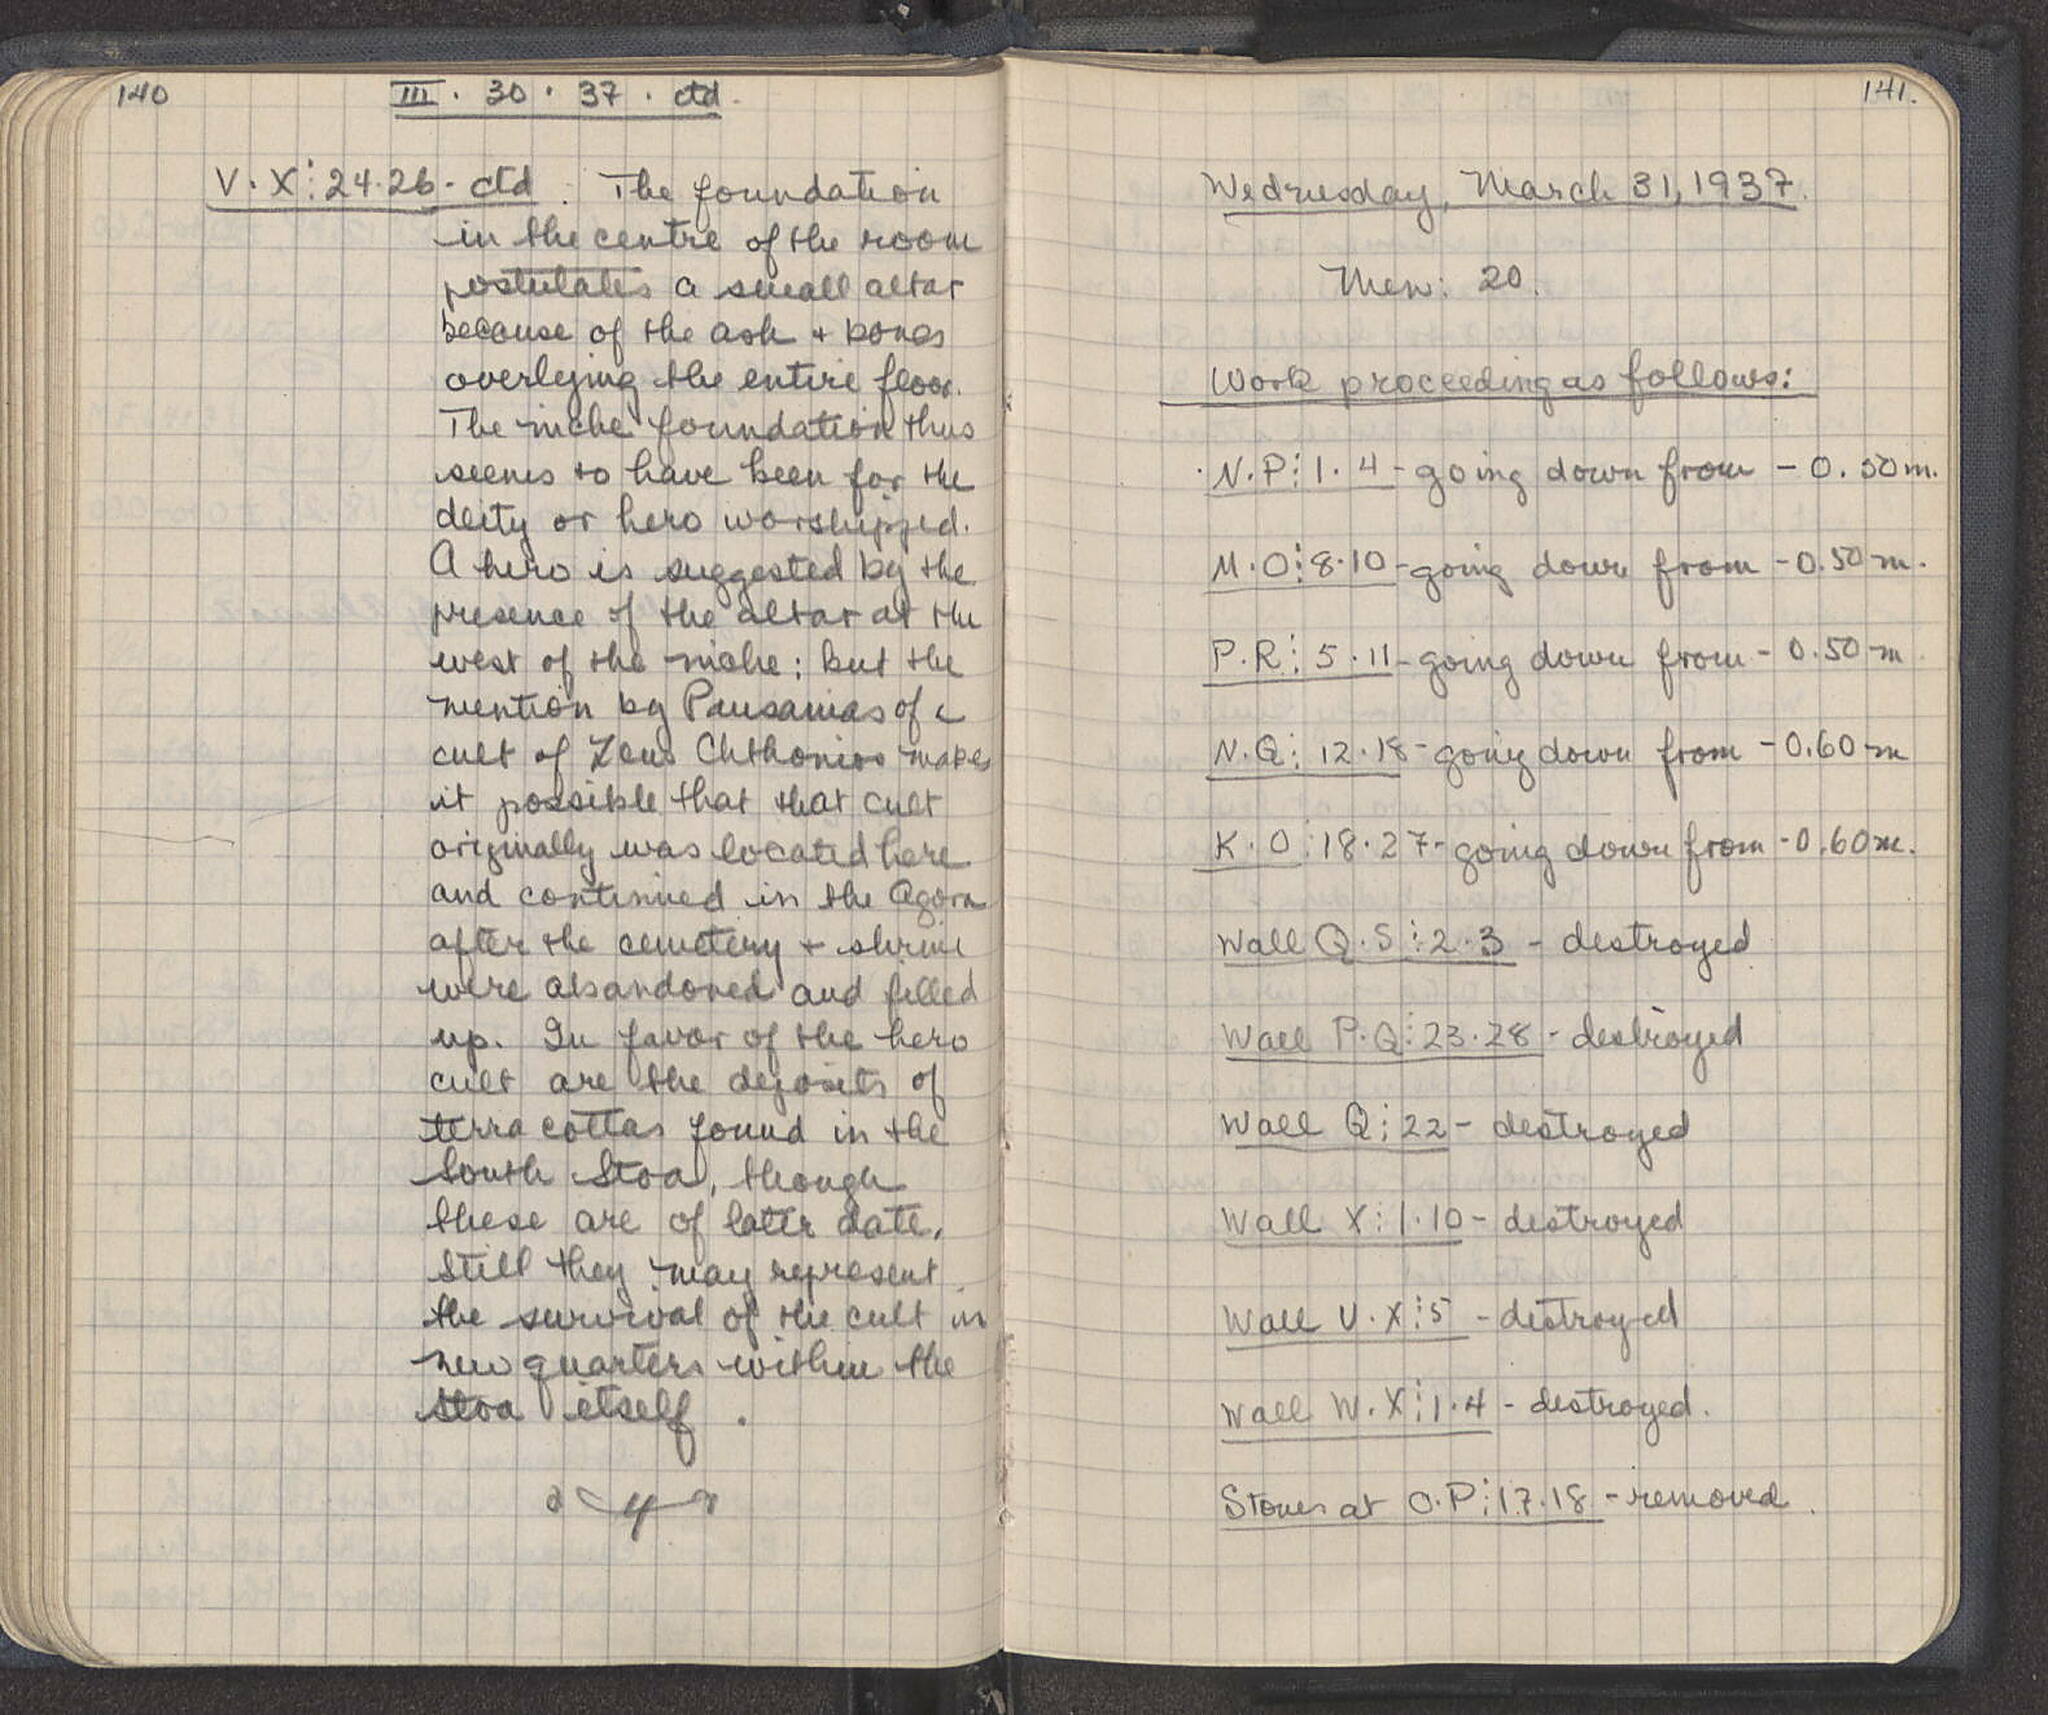 140
III · 30 · 37 · ctd.
V·X⋮24·26 - ctd. The foundation
in the centre of the room
postulates a small altar
because of the ash + bones
overlying the entire floor.
The niche foundation thus
seems to have been for the
deity or hero worshipped.
A hero is suggested by the
presence of the altar at the
west of the niche; but the
mention by Pausanias of a
cult of Zeus Chthonios makes
it possible that that cult
originally was located here
and continued in the Agora
after the cemetery + shrine
were abandoned and filled
up. In favor of the hero
cult are the deposits of
terra cottas found in the
South Stoa, though
these are of later date,
still they may represent
the survival of the cult in
new quarters within the
Stoa itself.
141.
Wednesday, March 31, 1937.
Men: 20.
Work proceeding as follows:
N.P⋮1·4 - going down from -0.50m.
M·O⋮8·10 - going down from -0.50m.
P.R⋮5·11 - going down from -0.50m
N.Q⋮12·18 - going down from -0.60m
K·O⋮18·27 - going down from -0.60m.
Wall Q·S⋮2·3 - destroyed
Wall P·Q⋮23·28 - destroyed
Wall Q⋮22 - destroyed
Wall X⋮1·10 - destroyed
Wall V·X⋮5 - destroyed
Wall W·X⋮1·4 - destroyed.
Stones at O·P⋮17·18 - removed.